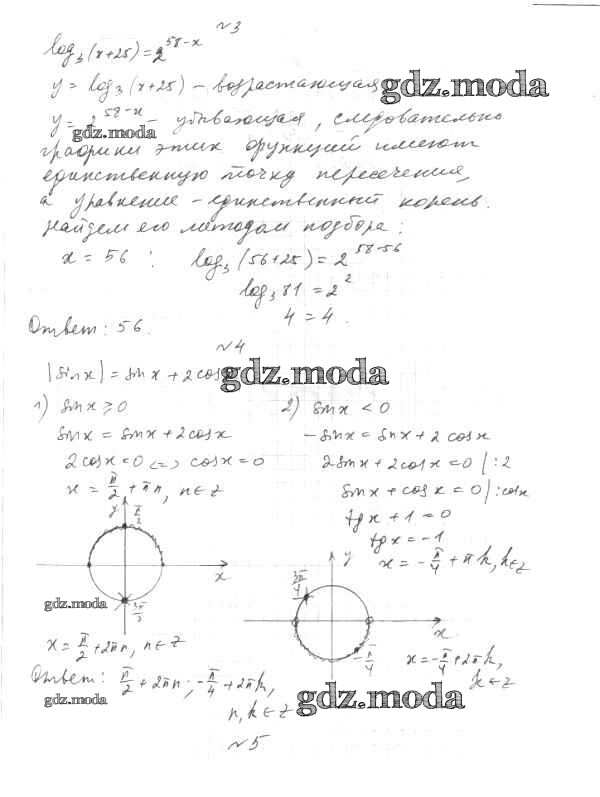 №3
log₃(x+25)=2^(58-x)
y = log₃(x+25) – возрастающая gdz.moda
y = 2^(58-x) – убывающая, следовательно
gdz.moda
графики этих функций имеют
единственную точку пересечения,
а уравнение – единственный корень.
Найдем его методом подбора:
x = 56 : log₃(56+25) = 2^(58-56)
log₃81 = 2²
4 = 4.
Ответ: 56.
№4
|sinx| = sinx + 2cosx gdz.moda
1) sinx ≥ 0
sinx = sinx + 2cosx
2cosx = 0 <=> cosx = 0
x = π/2 + πn, n∈Z
2) sinx < 0
-sinx = sinx + 2cosx
2sinx + 2cosx = 0 |:2
sinx + cosx = 0 |:cosx
tgx + 1 = 0
tgx = -1
x = -π/4 + πk, k∈Z
y
π/2
x
3π/2
gdz.moda
x = π/2 + 2πn, n∈Z
y
3π/4
x
-π/4
x = -π/4 + 2πk,
k∈Z
Ответ: π/2 + 2πn; -π/4 + 2πk,
n, k∈Z
gdz.moda
gdz.moda
№5